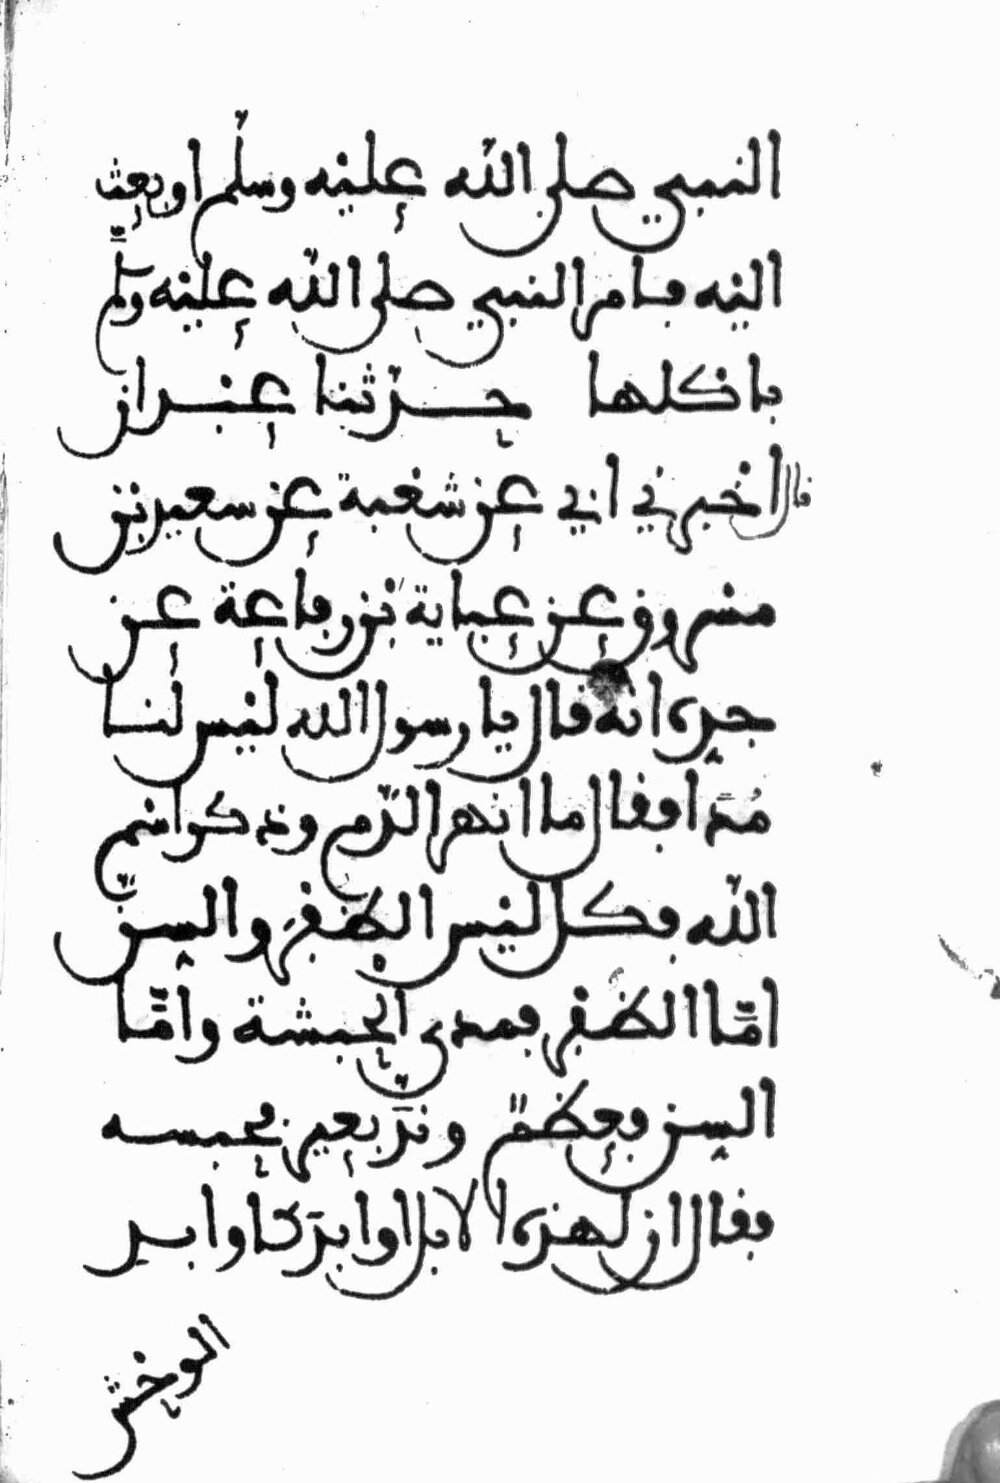 النبي صلى الله عليه وسلم او بعث
اليه فامر النبي صلى الله عليه وسلم
باكلها حدثنا عبدان
قال اخبرني ابي عن شعبة عن سعيد بن
مسروق عن عباية بن رفاعة عن
جده انه قال يا رسول الله ليس لنا
مدا فقال ما انهر الدم وذكر اسم
الله فكل ليس الظفر والسن
اما الظفر فمدى الحبشة واما
السن فعظم وند بعير فحبسه
فقال ان لهذه الابل اوابد كاوابد
الوحش